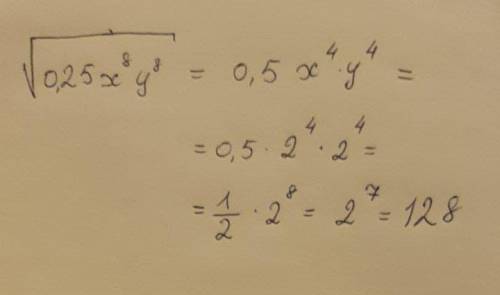 √0,25x⁸y⁸ = 0,5 x⁴·y⁴ =
= 0,5 · 2⁴ · 2⁴ =
= 1/2 · 2⁸ = 2⁷ = 128